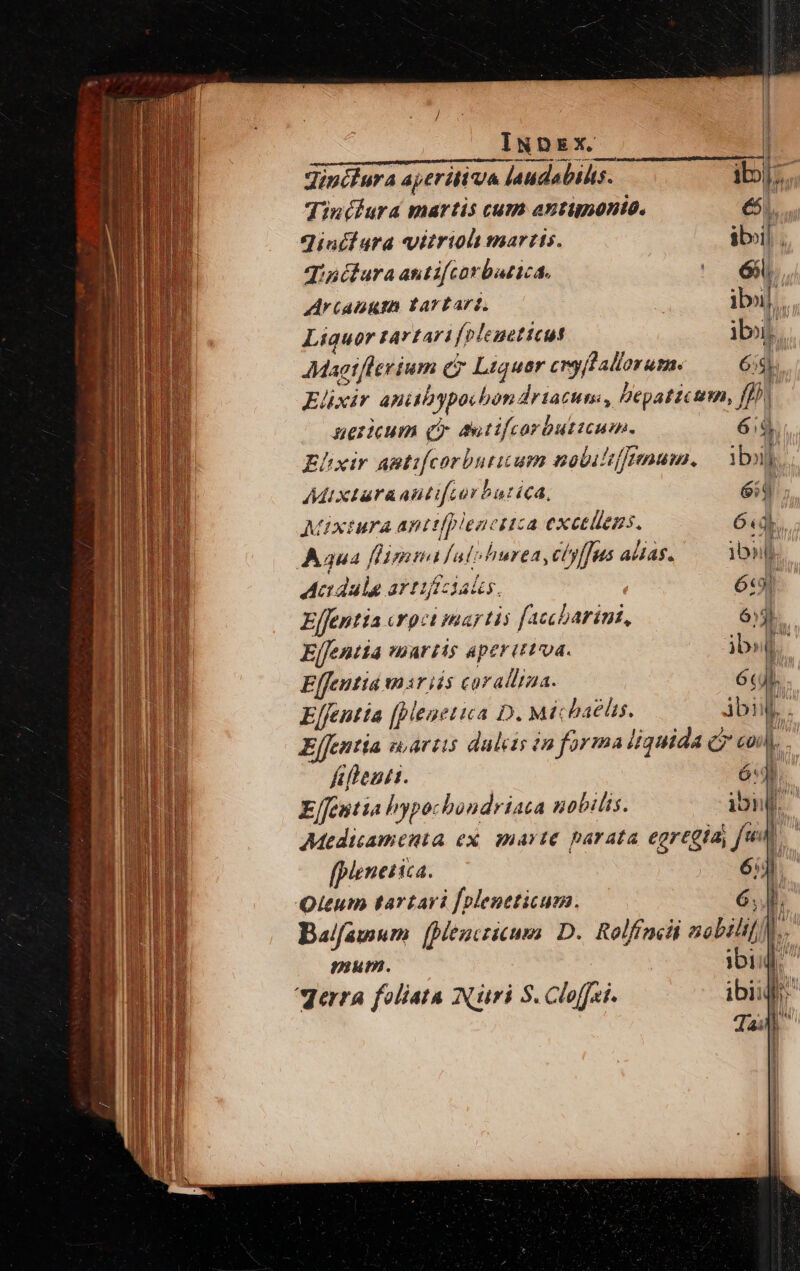 INDEX.
Tinctura aperitiva laudabilis. ibi
Tinctura martis cum antimonio. 6
Tinctura vitrioli martis. ibi
Tinctura antiſcorbutica. 6
Arcanum tartari. ibi
Liquor tartari ſpleneticus ibi
Magiſterium & Liquor cryſtallorum. 6
Elixir antihypochondriacum, hepaticum, ſpl
neticum & antiſcorbuticum. 6
Elixir antiſcorbuticum nobiliſſimum. ibi
Mixtura antiſcorbutica. 6
Mixtura antiſplenetica excellens. 6
Aqua ſtimma ſulphurea, clyſſus alias. ibi
Acidulæ artificiales. 6
Eſſentia croci martis ſaccharini, 6
Eſſentia martis aperitiva. ibi
Eſſentia martis corallina. 6
Eſſentia ſplenetica D. Michaëlis. ibi
Eſſentia martis dulcis in forma liquida & con
ſiſtenti. 6
Eſſentia hypochondriaca nobilis. ibi
Medicamenta ex marte parata egregia,
ſplenetica. 6
Oleum tartari ſpleneticum. 6
Balſamum ſpleneticum D. Rolfincii nobiliſſ
mum. ibi
Terra foliata Niiri S. Cloſſæi. ibi